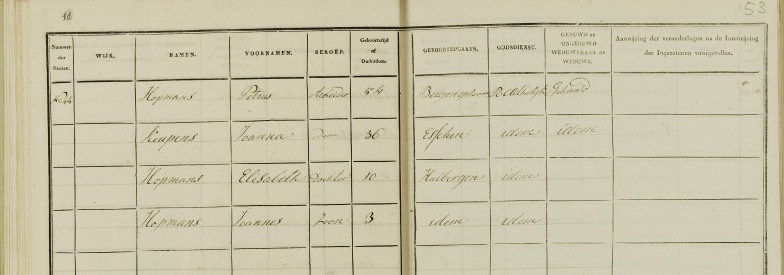 53
Nummer der Huizen. WIJK. NAMEN. VOORNAMEN. BEROEP. Geboortetijd of Ouderdom. GEBOORTEPLAATS. GODSDIENST. GEHUWD of ONGEHUWD WEDUWENAAR of WEDUWE. Aanwijzing der veranderingen na de Inschrijving der Ingezetenen voorgevallen.
44 Hopmans Petrus Arbeider 54 RCatholijk Gehuwd
Joanna idem 36 Esschen idem idem
Hopmans Elisabeth Dochter 10 Huibergen idem
Hopmans Joannes Zoon 3 idem idem